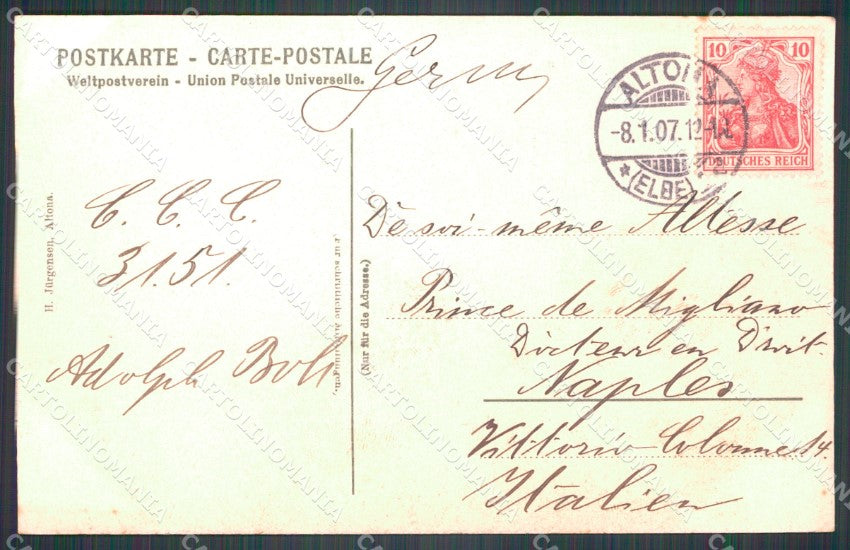 POSTKARTE - CARTE-POSTALE
Weltpostverein - Union Postale Universelle.
Germ
ALTONA
-8.1.07.12-1
(ELBE)
10 10
DEUTSCHES REICH
C. C. C.
3151.
Adolph Boll
H. Jürgensen, Altona.
Für schriftliche Mitteilungen.
(Nur für die Adresse.)
De soi-même Altesse
Prince de Migliano
Docteur en Droit.
Naples
Vittorio Colonne 14.
Italien
CARTOLINOMANIA